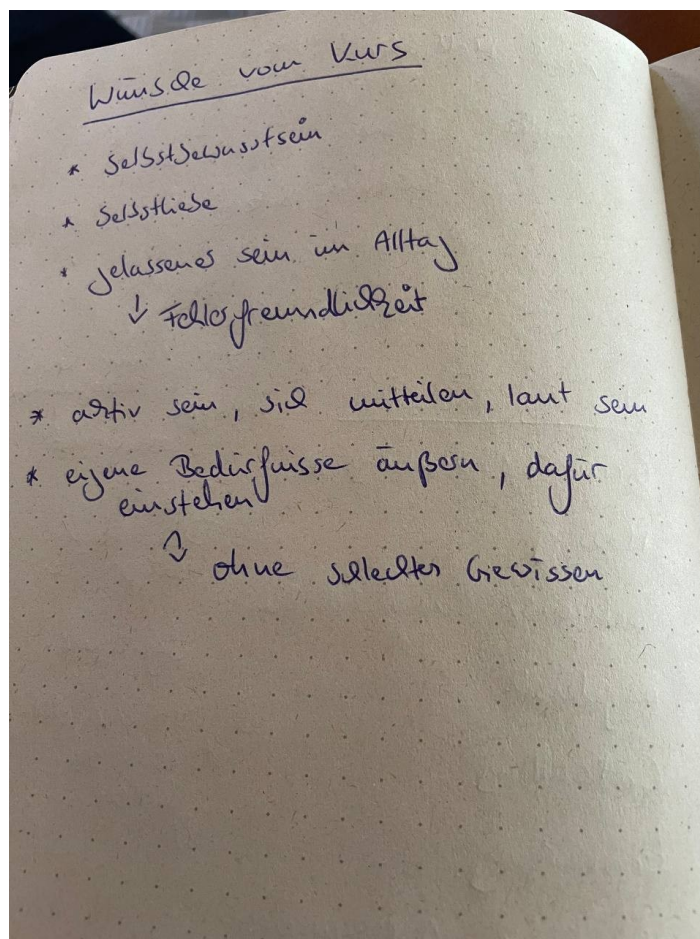 Wünsche vom Kurs
* Selbstbewusstsein
* Selbstliebe
* gelassenes sein im Alltag
↓ Fehlerfreundlichkeit
* aktiv sein, sich mitteilen, laut sein
* eigene Bedürfnisse äußern, dafür
einstehen
↷ ohne schlechtes Gewissen